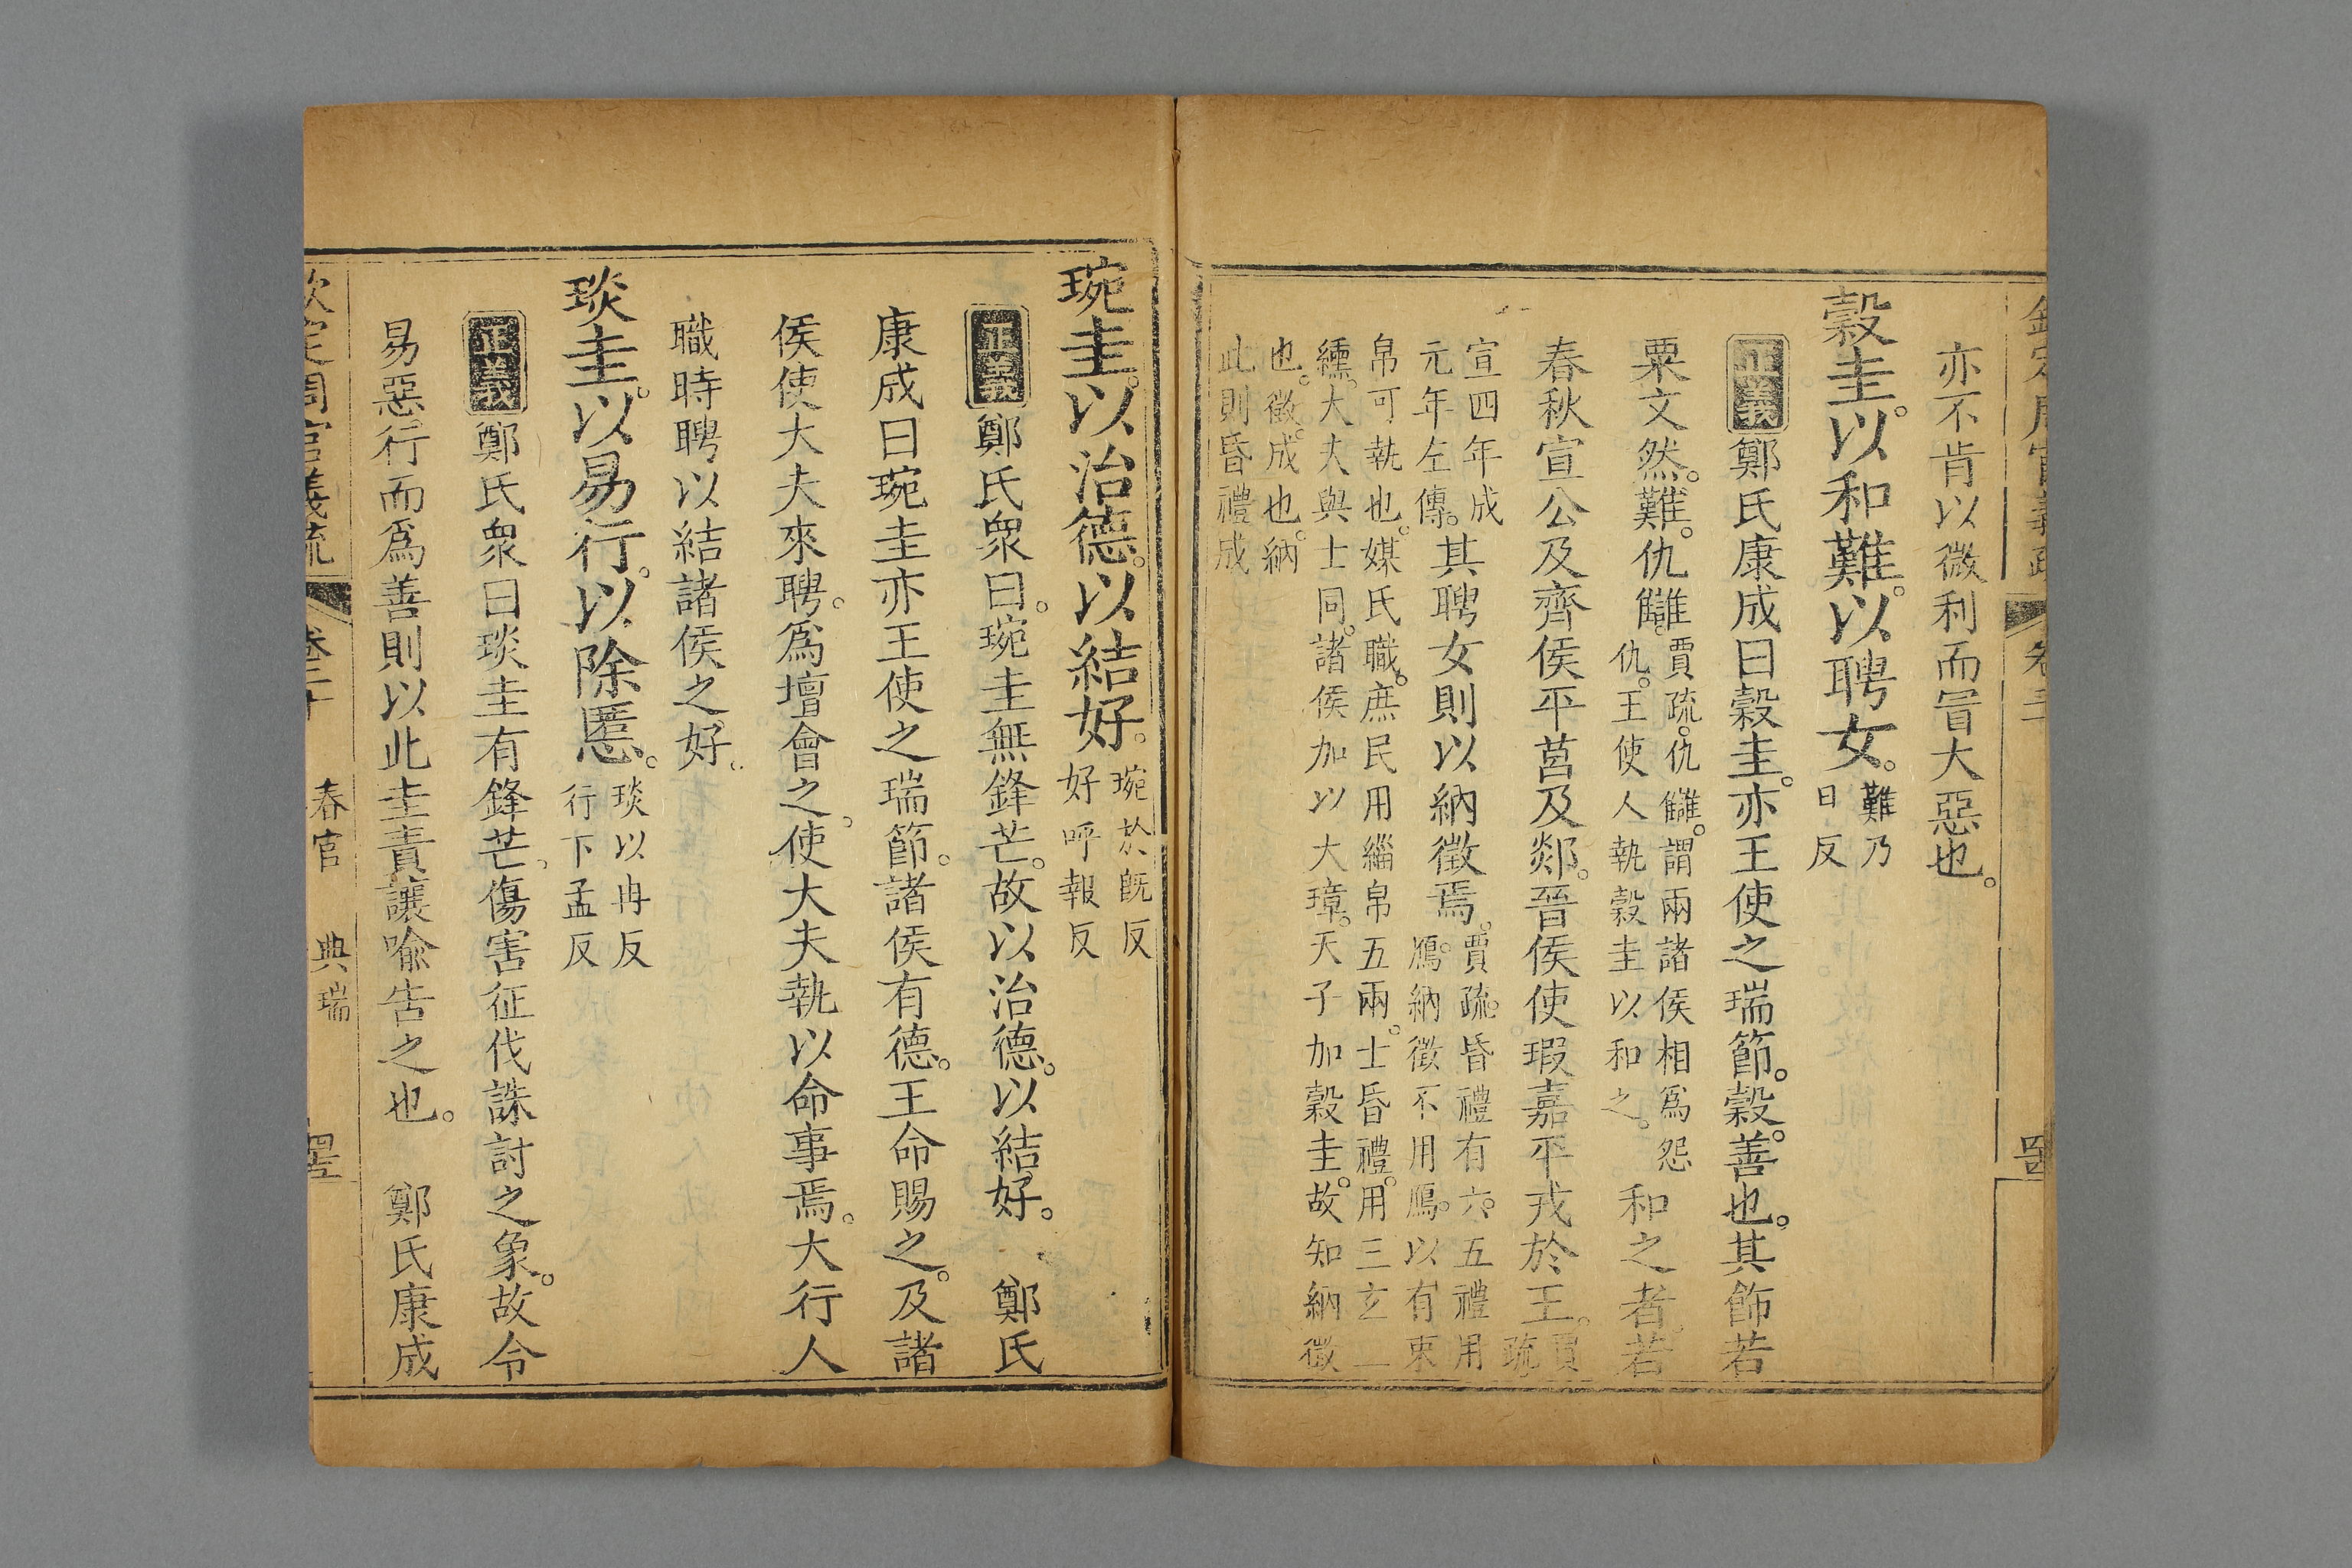 亦不肯以微利而冒大惡也。
穀圭。以和難。以聘女。難乃
日反
正義鄭氏康成曰穀圭。亦王使之瑞節。穀。善也。其飾若
粟文然。難。仇讎。賈疏。仇讎。謂兩諸侯相爲怨
仇。王使人執穀圭以和之。和之者。若
春秋宣公及齊侯平莒及郯。晉侯使瑕嘉平戎於王。賈
疏
宣四年成
元年左傳。其聘女則以納徵焉。賈疏。昏禮有六。五禮用
鴈。納徵不用鴈。以有束
帛可執也。媒氏職。庶民用緇帛五兩。士昏禮。用三玄二
纁。大夫與士同。諸侯加以大璋。天子加穀圭。故知納徵
也。徵。成也。納
此則昏禮成
琬圭。以治德。以結好。琬於既反
好呼報反
正義鄭氏衆曰。琬圭無鋒芒。故以治德。以結好。 鄭氏
康成曰琬圭亦王使之瑞節。諸侯有德。王命賜之。及諸
侯使大夫來聘。爲壇會之。使大夫執以命事焉。大行人
職時聘以結諸侯之好。
琰圭。以易行。以除慝。琰以冉反
行下孟反
正義鄭氏衆曰琰圭有鋒芒。傷害征伐誅討之象。故令
易惡行而爲善則以此圭責讓喻告之也。 鄭氏康成
欽定周官義疏 卷二十 春官 典瑞